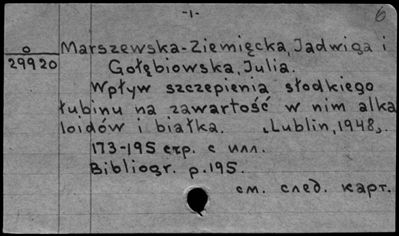 -1-
6
o
29920
Marszewska-Ziemięcka, Jadwiga i
Gołębiowska, Julia.
Wpływ szczepienia słodkiego
łubinu na zawartość w nim alka
loidów i białka. „Lublin, 1948„.
173-195 стр. с илл.
Bibliogr. p. 195.
см. след. карт.